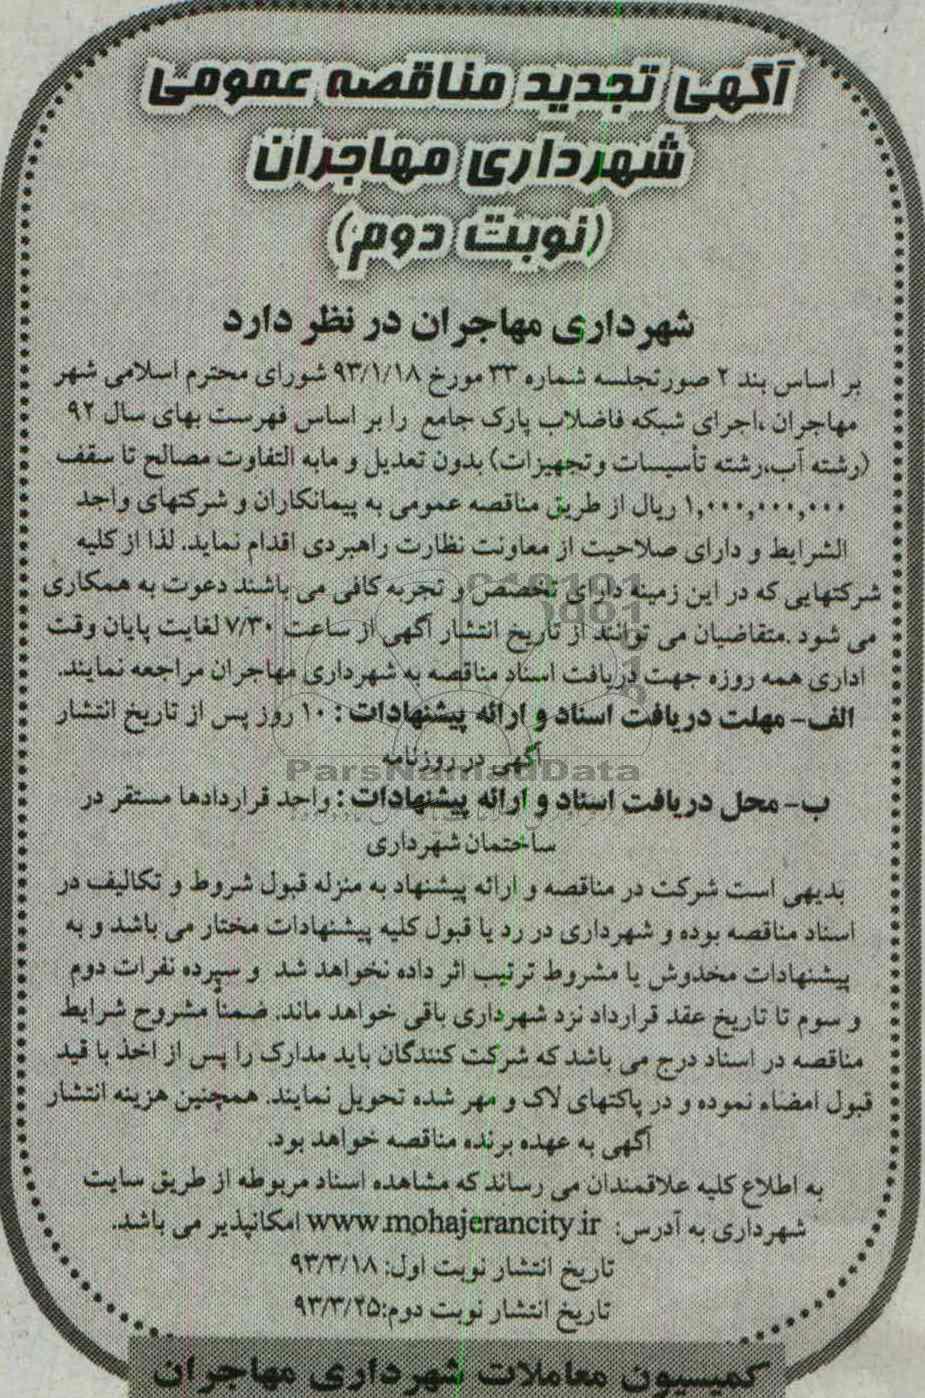 آگهی تجدید مناقصه عمومی
شهرداری مهاجران
(نوبت دوم)
شهرداری مهاجران در نظر دارد
بر اساس بند ۲ صورتجلسه شماره ۳۳ مورخ ۹۳/۱/۱۸ شورای محترم اسلامی شهر
مهاجران ،اجرای شبکه فاضلاب پارک جامع را بر اساس فهرست بهای سال ۹۲
(رشته آب،رشته تأسیسات وتجهیزات) بدون تعدیل و مابه التفاوت مصالح تا سقف
۱,۰۰۰,۰۰۰,۰۰۰ ریال از طریق مناقصه عمومی به پیمانکاران و شرکتهای واجد
الشرایط و دارای صلاحیت از معاونت نظارت راهبردی اقدام نماید. لذا از کلیه
شرکتهایی که در این زمینه دارای تخصص و تجربه کافی می باشند دعوت به همکاری
می شود .متقاضیان می توانند از تاریخ انتشار آگهی از ساعت ۷/۳۰ لغایت پایان وقت
اداری همه روزه جهت دریافت اسناد مناقصه به شهرداری مهاجران مراجعه نمایند.
الف- مهلت دریافت اسناد و ارائه پیشنهادات : ۱۰ روز پس از تاریخ انتشار
آگهی در روزنامه
ParsNamadData
ب- محل دریافت اسناد و ارائه پیشنهادات : واحد قراردادها مستقر در
ساختمان شهرداری
بدیهی است شرکت در مناقصه و ارائه پیشنهاد به منزله قبول شروط و تکالیف در
اسناد مناقصه بوده و شهرداری در رد یا قبول کلیه پیشنهادات مختار می باشد و به
پیشنهادات مخدوش یا مشروط ترتیب اثر داده نخواهد شد و سپرده نفرات دوم
و سوم تا تاریخ عقد قرارداد نزد شهرداری باقی خواهد ماند. ضمناً مشروح شرایط
مناقصه در اسناد درج می باشد که شرکت کنندگان باید مدارک را پس از اخذ با قید
قبول امضاء نموده و در پاکتهای لاک و مهر شده تحویل نمایند. همچنین هزینه انتشار
آگهی به عهده برنده مناقصه خواهد بود.
به اطلاع کلیه علاقمندان می رساند که مشاهده اسناد مربوطه از طریق سایت
شهرداری به آدرس: www.mohajerancity.ir امکانپذیر می باشد.
تاریخ انتشار نوبت اول: ۹۳/۳/۱۸
تاریخ انتشار نوبت دوم:۹۳/۳/۲۵
کمیسیون معاملات شهرداری مهاجران